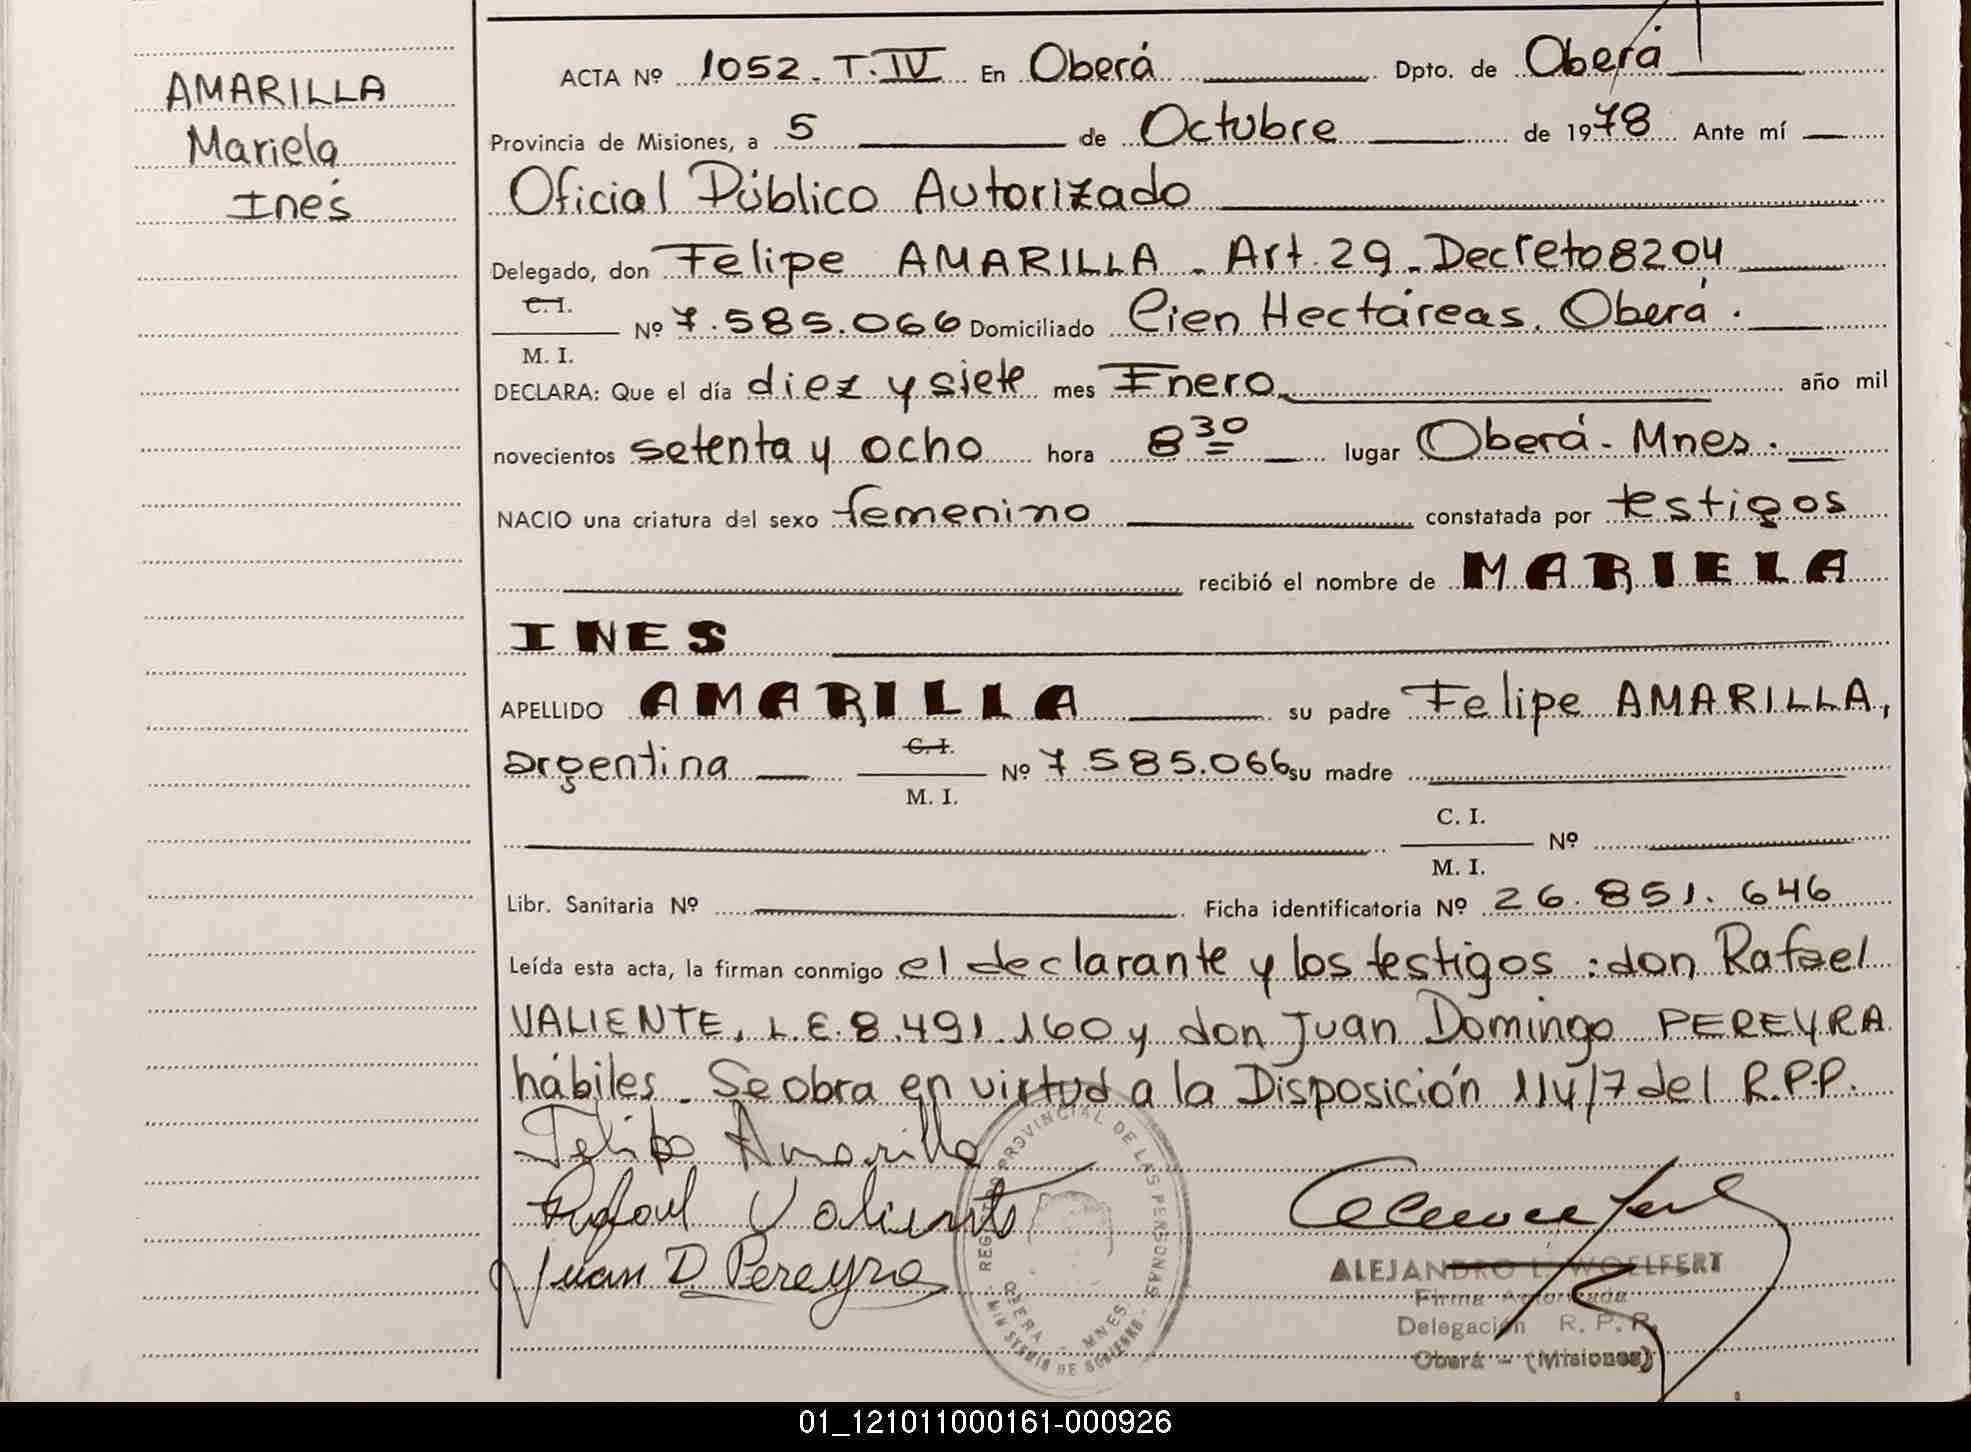 AMARILLA
Mariela
Inés
ACTA Nº 1052. T. IV En Oberá Dpto. de Oberá
Provincia de Misiones, a 5 de Octubre de 1978 Ante mí
Oficial Público Autorizado
Delegado, don Felipe AMARILLA. Art. 29. Decreto 8204
C. I.
M. I. Nº 7.585.066 Domiciliado Cien Hectáreas. Oberá.
DECLARA: Que el día diez y siete mes Enero año mil
novecientos setenta y ocho hora 8 30 lugar Oberá - Mnes.
NACIO una criatura del sexo femenino constatada por testigos
recibió el nombre de MARIELA
INES
APELLIDO AMARILLA su padre Felipe AMARILLA,
argentina C. I. M. I. Nº 7.585.066 su madre
C. I.
M. I. Nº
Libr. Sanitaria Nº Ficha identificatoria Nº 26.851.646
Leída esta acta, la firman conmigo el declarante y los testigos: don Rafael
VALIENTE, L.E. 8.491.160 y don Juan Domingo PEREYRA
hábiles. Se obra en virtud a la Disposición 114/7 del R.P.P.
Felipe Amarilla
Rafael Valiente
Juan D. Pereyra
REGISTRO PROVINCIAL DE LAS PERSONAS
OBERA - MNES
MINISTERIO DE GOBIERNO
ALEJANDRO L. WOELFERT
Firma Autorizada
Delegación R. P. P.
Oberá - (Misiones)
01_121011000161-000926